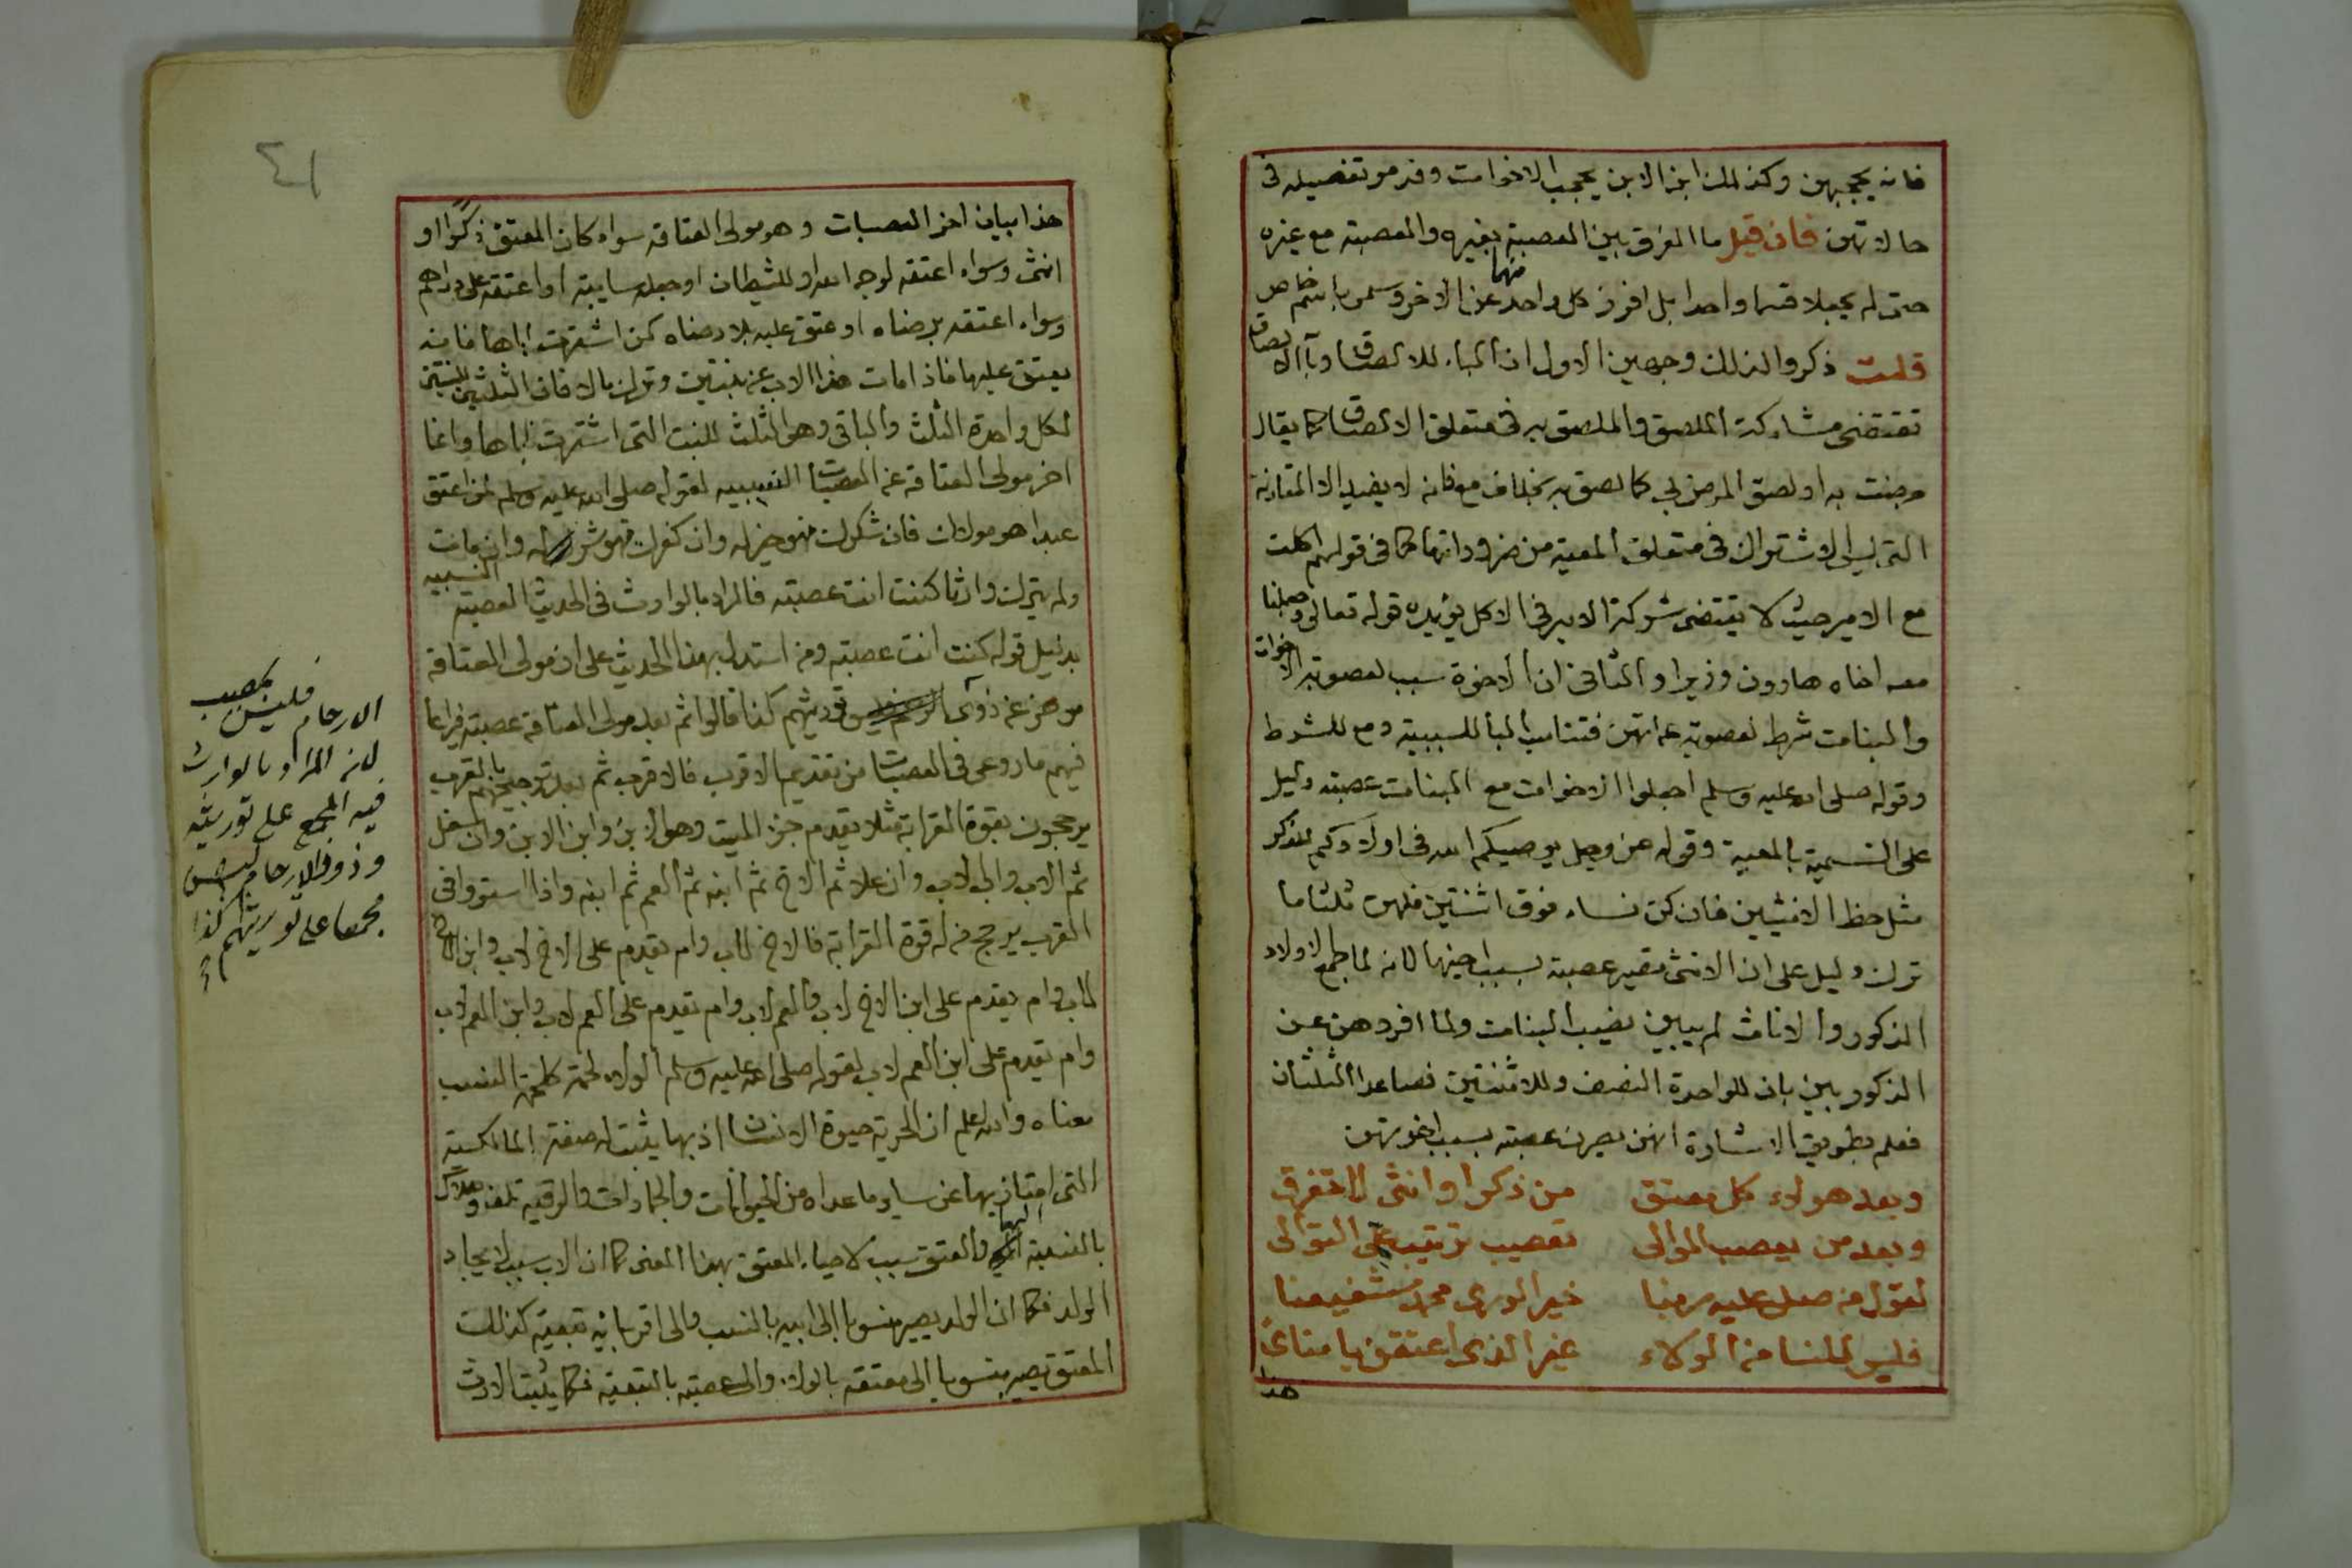 فانه يحجبهن وكذلك ابن الابن يحجب الاخوات وقد مر تفصيله فى
حالاتهن فان قيل ما الفرق بين العصبة بغيره والعصبة مع غيره
حتى لم يجعلا قسما واحدا بل افرز كل واحد منهما عن الاخر وسمى باسم خاص
قلت ذكروا لذلك وجهين الاول ان الباء للالصاق وباء الالصاق
تقتضى مشاركة الملصق والملصق به فى متعلق الالصاق كما يقال
مرضت به او لصق المرض بى كما لصق به بخلاف مع فانه لا يفيد الا المقارنة
التى ليس الاشتراك فى متعلق المعية من ضروراتها كما فى قولهم اكلت
مع الامير حيث لا يقتضى شركة الامير فى الاكل يؤيده قوله تعالى وجعلنا
معه اخاه هارون وزيرا والثانى ان الاخوة سبب لعصوبة الاخوات
والبنات شرط لعصوبة عماتهن فتناسب الباء للسببية ومع للشرط
وقوله صلى الله عليه وسلم اجعلوا الاخوات مع البنات عصبة دليل
على التسمية بالمعية وقوله عز وجل يوصيكم الله فى اولادكم للذكر
مثل حظ الانثيين فان كن نساء فوق اثنتين فلهن ثلثا ما
ترك دليل على ان الانثى تصير عصبة بسبب اخيها لانه لما جمع الاولاد
الذكور والاناث لم يبين نصيب البنات ولما افردهن عن
الذكور بين بان للواحدة النصف وللاثنتين فصاعدا الثلثان
فعلم بطريق الاشارة انهن يصرن عصبة بسبب اخوتهن
وبعد هولاء كل معتق من ذكر او انثى لا تفرق
وبعد من يعصب الموالى تعصيب ترتيب على التوالى
لقول من صلى عليه ربنا خير الورى محمد شفيعنا
فليس للنسا من الولاء غير الذى اعتقن يا مناى
هذا
٤١
هذا بيان اخر العصبات وهو مولى العتاقة سواء كان المعتق ذكرا او
انثى وسواء اعتقه لوجه الله او للشيطان او جعله سايبة او اعتقه على دراهم
وسواء اعتقه برضاه او عتق عليه بلا رضاه كمن اشترت اباها فانه
يعتق عليها فاذا مات هذا الاب عن بنتين وترك مالا فان الثلثين للبنتين
لكل واحدة الثلث والباقى وهو الثلث للبنت التى اشترت اباها وانما
اخر مولى العتاقة عن العصبات النسبية لقوله صلى الله عليه وسلم لمن اعتق
عبدا هو مولاك فان شكرك فهو خير له وان كفرك فهو شر له وان مات
ولم يترك وارثا كنت انت عصبته فالمراد بالوارث فى الحديث العصبة النسبية
بدليل قوله كنت انت عصبته ومن استدل بهذا الحديث على ان مولى العتاقة
موخر عن ذوى كذا قالوا ثم بعد مولى العتاقة عصبته فيراعا
فيهم ما روعى فى العصبات من تقديم الاقرب فالاقرب ثم بعد ترجيحهم بالقرب
يرجحون بقوة القرابة مثلا يقدم جزء الميت وهو الابن وابن الابن وان سفل
ثم الاب واب الاب وان علا ثم الاخ ثم ابنه ثم العم ثم ابنه واذا استووا فى
القرب يرجح من له قوة القرابة فالاخ لاب وام يقدم على الاخ لاب وابن الاخ
لاب وام يقدم على ابن الاخ لاب والعم لاب وام يقدم على العم لاب وابن العم لاب
وام يقدم على ابن العم لاب لقوله صلى الله عليه وسلم الولاء لحمة كلحمة النسب
معناه والله اعلم ان الحرية حيوة الانسان اذ بها يثبت له صفة المالكية
التى امتاز بها عن ساير ما عداه من الحيوانات والجمادات والرقية تلف وهلاك
بالنسبة اليها والعتق سبب لاحياء المعتق بهذا المعنى كما ان الاب سبب لايجاد
الولد فكما ان الولد يصير منسوبا الى ابيه بالنسب والى اقربائه بتبعيته كذلك
المعتق يصير منسوبا الى معتقه بالولاء والى عصبته بالتبعية فكما يثبت الارث
الارحام فليس بمصيب
لانه المراد بالوارث
فيه المجمع على توريثه
وذووا الارحام ليس
مجمعا على توريثهم كذا